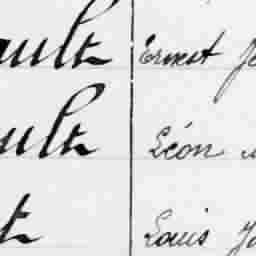 ault Ernest Je
ult Léon
t Louis J